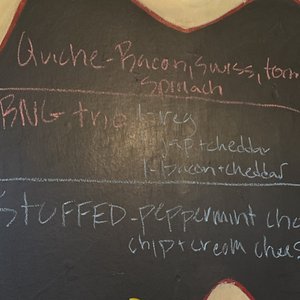 Quiche - Bacon, swiss, tom
spinach
BNG trio 1-reg
1-jap+cheddar
1-Bacon+cheddar
STUFFED - peppermint cho
chip+cream chees